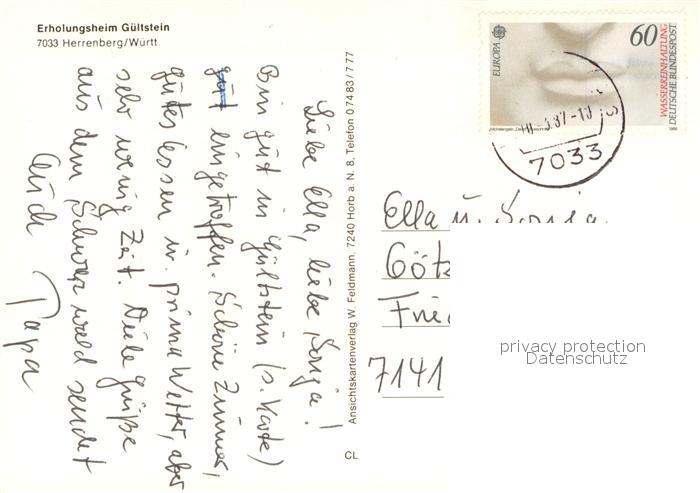 Erholungsheim Gültstein
7033 Herrenberg/Württ.
Liebe Ella, liebe Sonja!
Bin gut in Gültstein (s. Karte)
gut eingetroffen. Schöne Zimmer,
gutes Essen u. prima Wetter, aber
sehr wenig Zeit. Viele Grüße
aus dem Schwarzwald sendet
Euch Papa
Ansichtskartenverlag W. Feldmann, 7240 Horb a. N. 8, Telefon 07483/777
CL
EUROPA
60
WASSERREINHALTUNG
DEUTSCHE BUNDESPOST
1986
87-18
7033
Ella u. Sonja
Götz
Frie
7141
privacy protection
Datenschutz